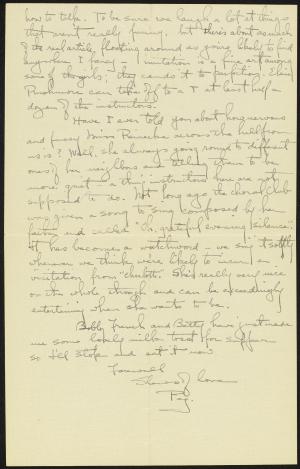 how to talk. To be sure we laugh a lot at things
that aren't really funny, but there's about as much
of the real article, floating around as you're likely to find
anywhere, I fancy. imitation is a fine art among
some of the girls; they can do it to perfection. Elsie
can take off to a T at least half a
dozen of the instructors.
Have I ever told you about how nervous
and fussy Miss across the hall from
us is? Well, she always going round to different
ones of her neighbors and telling them to be
more quiet - a thing instructors here are not
supposed to do. Not long ago the choral club
was given a song to sing composed by her
father and called "Oh, grateful evening silence".
It has become a watchword - we sing it softly
whenever we think we're likely to incur a
visitation from She's really very nice
on the whole though and can be exceedingly
entertaining when she wants to be.
Bobby, French and Betty have just made
me some lovely milk toast for supper
so I'll stop and eat it now
Farewell
of love